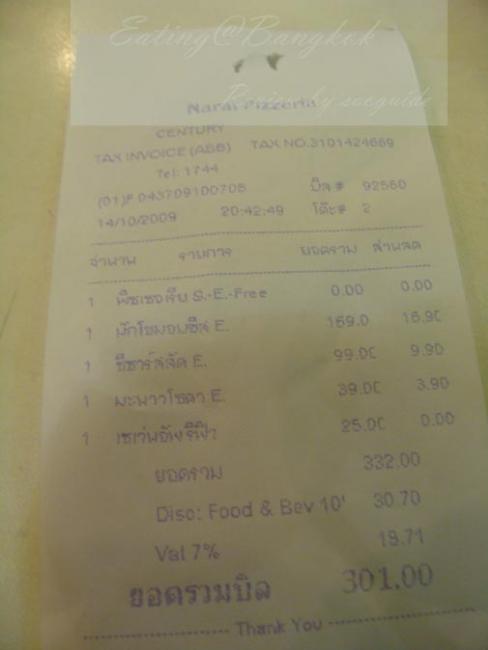 Eating@Bangkok
Review by socguide
Narai Pizzeria
CENTURY
TAX INVOICE (ABB) TAX NO.3101424669
Tel: 1744
บิล # 92560
14/10/2009 20:42:49 โต๊ะ# 2
จำนวน รายการ ยอดรวม ส่วนลด
1 S.-E.-Free 0.00 0.00
1 ผักโขมอบชีส E. 169.0 16.90
1 ซีซาร์สลัด E. 99.00 9.90
1 มะนาวโซดา E. 39.00 3.90
1 เซเว่นอัพรีฟิว 25.00 0.00
ยอดรวม 332.00
Disc: Food & Bev 10' 30.70
Vat 7% 19.71
ยอดรวมบิล 301.00
Thank You